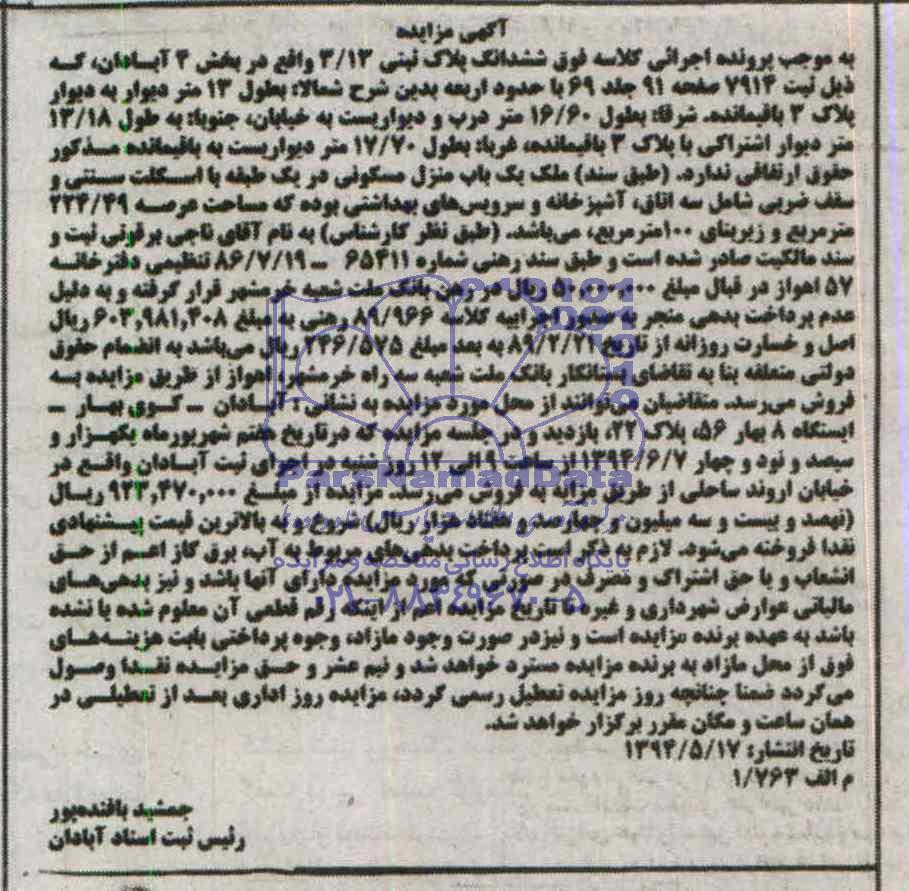 آگهی مزایده
به موجب پرونده اجرائی کلاسه فوق ششدانگ پلاک ثبتی ۳/۱۳ واقع در بخش ۴ آبادان، که
ذیل ثبت ۷۹۱۴ صفحه ۹۱ جلد ۶۹ با حدود اربعه بدین شرح شمالا: بطول ۱۳ متر دیوار به دیوار
پلاک ۳ باقیمانده. شرقا: بطول ۱۶/۶۰ متر درب و دیواریست به خیابان، جنوبا: به طول ۱۳/۱۸
متر دیوار اشتراکی با پلاک ۳ باقیمانده، غربا: بطول ۱۷/۷۰ متر دیواریست به باقیمانده مذکور
حقوق ارتفاقی ندارد. (طبق سند) ملک یک باب منزل مسکونی در یک طبقه با اسکلت سنتی و
سقف ضربی شامل سه اتاق، آشپزخانه و سرویس‌های بهداشتی بوده که مساحت عرصه ۲۲۴/۴۹
مترمربع و زیربنای ۱۰۰مترمربع، می‌باشد. (طبق نظر کارشناس) به نام آقای ناجی برقونی ثبت و
سند مالکیت صادر شده است و طبق سند رهنی شماره ۶۵۴۱۱ ــ ۸۶/۷/۱۹ تنظیمی دفترخانه
۵۷ اهواز در قبال مبلغ ۵۰،۰۰۰،۰۰۰ ریال در رهن بانک ملت شعبه خرمشهر قرار گرفته و به دلیل
عدم پرداخت بدهی منجر به صدور اجرائیه کلاسه ۸۹/۹۶۶ رهنی به مبلغ ۶۰۳,۹۸۱,۴۰۸ ریال
اصل و خسارت روزانه از تاریخ ۸۹/۲/۲۱ به بعد مبلغ ۲۴۶/۵۷۵ ریال می‌باشد به انضمام حقوق
دولتی متعلقه بنا به تقاضای بستانکار بانک ملت شعبه سه راه خرمشهر، اهواز از طریق مزایده به
فروش می‌رسد. متقاضیان می‌توانند از محل مورد مزایده به نشانی: آبادان ــ کوی بهار ــ
ایستگاه ۸ بهار ۵۶، پلاک ۲۲، بازدید و در جلسه مزایده که درتاریخ هفتم شهریورماه یکهزار و
سیصد و نود و چهار ۱۳۹۴/۶/۷ از ساعت ۹ الی ۱۲ روز شنبه در اجرای ثبت آبادان واقع در
خیابان اروند ساحلی از طریق مزایه به فروش می‌رسد. مزایده از مبلغ ۹۲۳,۴۷۰,۰۰۰ ریال
(نهصد و بیست و سه میلیون و چهارصد و هفتاد هزار ریال) شروع و به بالاترین قیمت پیشنهادی
نقدا فروخته می‌شود. لازم به ذکر است پرداخت بدهی‌های مربوط به آب، برق گاز اعم از حق
انشعاب و یا حق اشتراک و مصرف در صورتی که مورد مزایده دارای آنها باشد و نیز بدهی‌های
مالیاتی عوارض شهرداری و غیره تا تاریخ مزایده اعم از اینکه رقم قطعی آن معلوم شده یا نشده
باشد به عهده برنده مزایده است و نیزدر صورت وجود مازاد، وجوه پرداختی بابت هزینه‌های
فوق از محل مازاد به برنده مزایده مسترد خواهد شد و نیم عشر و حق مزایده نقدا وصول
می‌گردد ضمنا چنانچه روز مزایده تعطیل رسمی گردد، مزایده روز اداری بعد از تعطیلی در
همان ساعت و مکان مقرر برگزار خواهد شد.
تاریخ انتشار: ۱۳۹۴/۵/۱۷
م الف ۱/۷۶۳
جمشید بافنده‌پور
رئیس ثبت اسناد آبادان
ParsNamadData
پایگاه اطلاع رسانی مناقصه و مزایده
۰۲۱-۸۸۳۴۹۶۷۰-۵